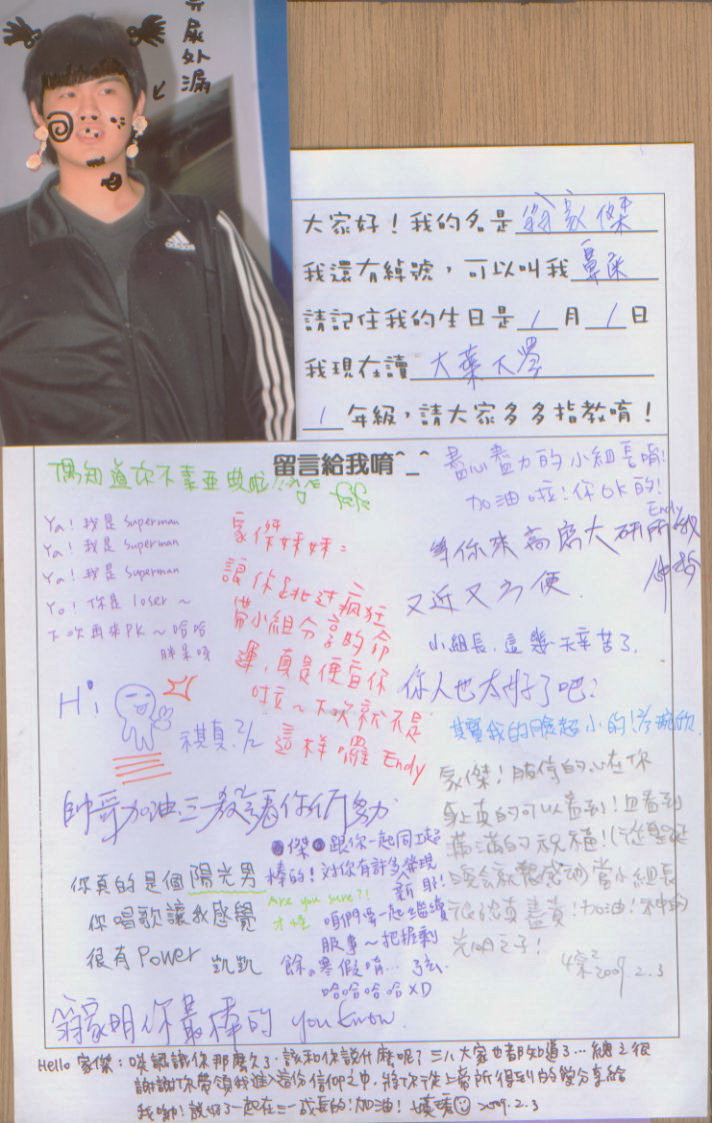 尿外漏
adidas
大家好！我的名是 翁家傑
我還有綽號，可以叫我
請記住我的生日是 1 月 1 日
我現在讀 大葉大學
1 年級，請大家多多指教唷！
留言給我唷^_^
盡心盡力的小組長唷!
加油啦!你OK的!
Endy
等你來高
又近又方便
小組長,這幾天辛苦了.
你人也太好了吧?
Ya! 我是 Superman
Ya! 我是 Superman
Ya! 我是 Superman
Yo! 你是 loser ~
下次再來PK ~ 哈哈
家傑妹妹：
讓你
帶小組分享的命
運,真是便宜你
~ 下次就不是
這樣囉 Endy
Hi
祺真. 2/2
帥哥加油
家傑!服侍的心在你
身上真的可以看到!且看到
滿滿的祝福!
晚會就很感動 當小組長
真盡責!加油!
光明之子!
2009. 2. 3
你真的是個陽光男
你唱歌讓我感覺
很有Power 凱凱
傑 跟你一起同工超
棒的! 對你有許多發現
新
Are you sure?!
咱們要一起繼續
服事~把握剩
餘。寒假唷...
哈哈哈哈XD
翁家明你最棒的 you know.
Hello 家傑：唉認識你那麼久了,該和你說什麼呢?三八大家也都知道了...總之很
謝謝你帶領我進入這份信仰之中,將你從上帝所得到的
分享給
我呦!說好了一起在三一成長的!加油! 2009.2.3